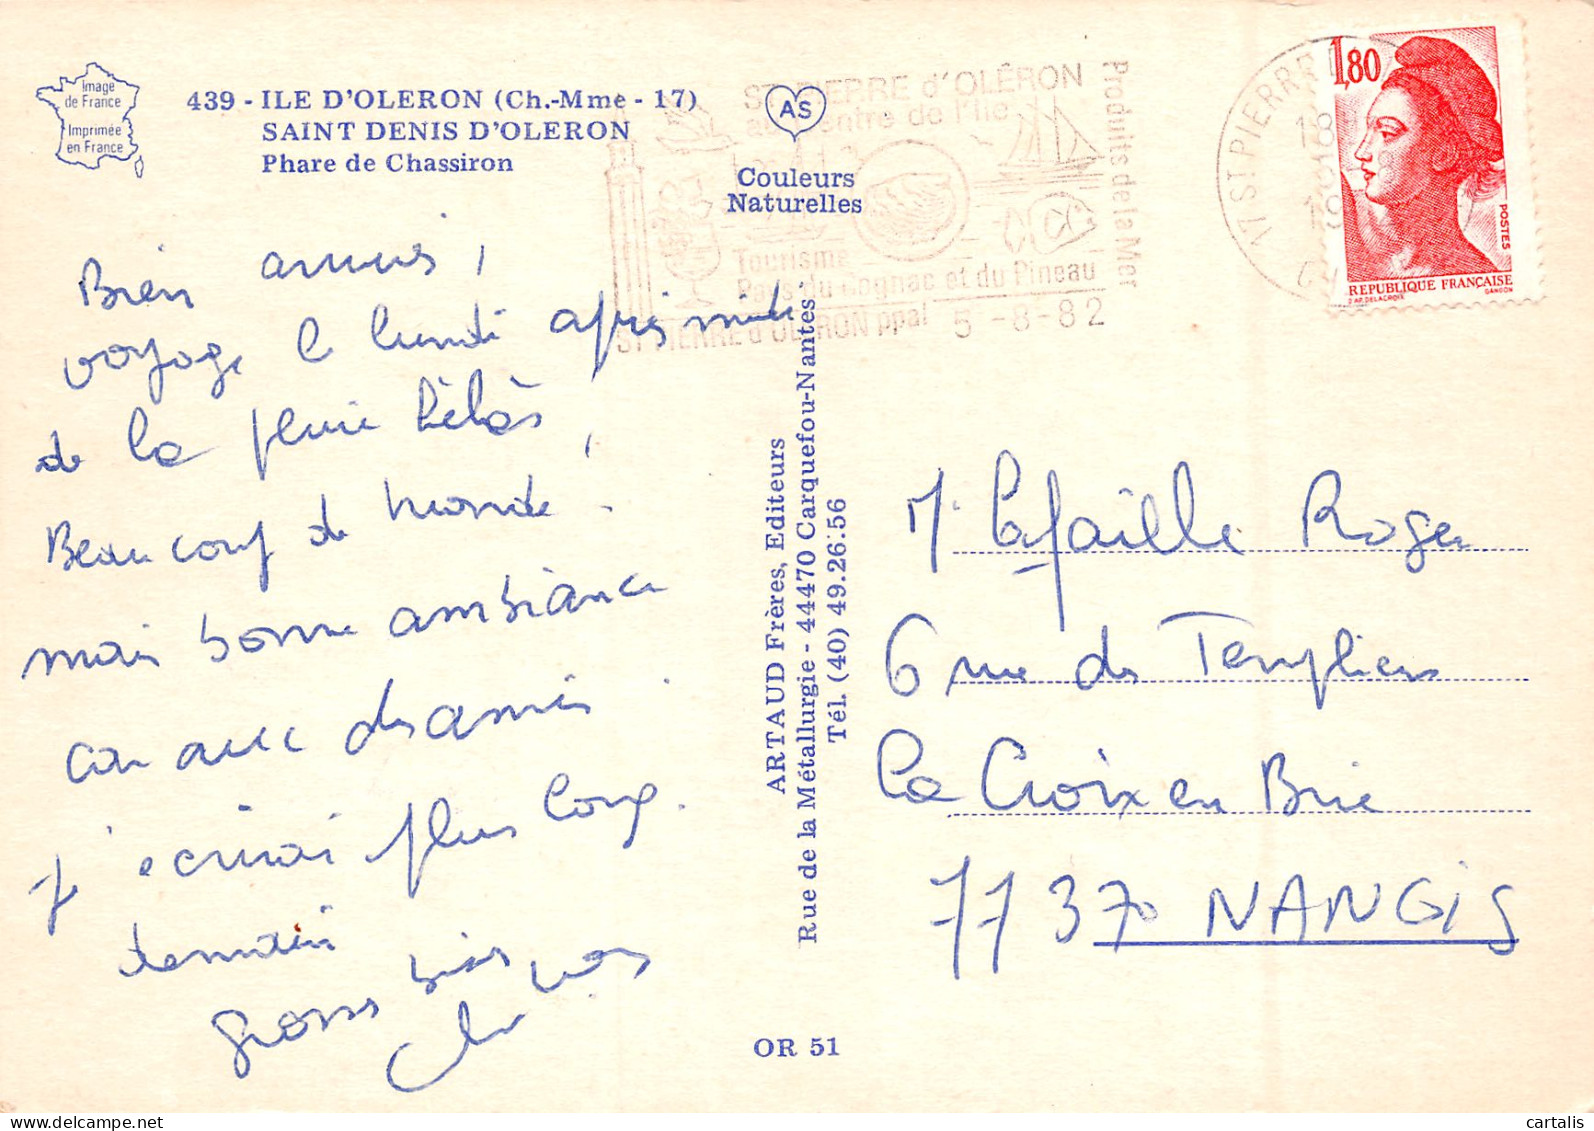 Image
de France
Imprimée
en France
439 - ILE D'OLERON (Ch.-Mme - 17)
SAINT DENIS D'OLERON
Phare de Chassiron
AS
Couleurs
Naturelles
ST PIERRE d'OLÉRON
au centre de l'Ile
Tourisme
Pays du Cognac et du Pineau
Produits de la Mer
ST PIERRE d'OLERON ppal 5 -8-82
17 ST PIERRE
18
1,80
POSTES
REPUBLIQUE FRANÇAISE
D'AP. DELACROIX GANDON
Bien arrivés,
voyage le lundi après midi
de la pluie hélàs,
Beaucoup de monde.
mais bonne ambiance
car avec des amis.
j'écrirai plus long.
demain
gros bises
ARTAUD Frères, Editeurs
Rue de la Métallurgie - 44470 Carquefou-Nantes
Tél. (40) 49.26.56
Mr Lafaille Roger
6 rue des Templiers
La Croix en Brie
77370 NANGIS
OR 51
cartalis
delcampe.net